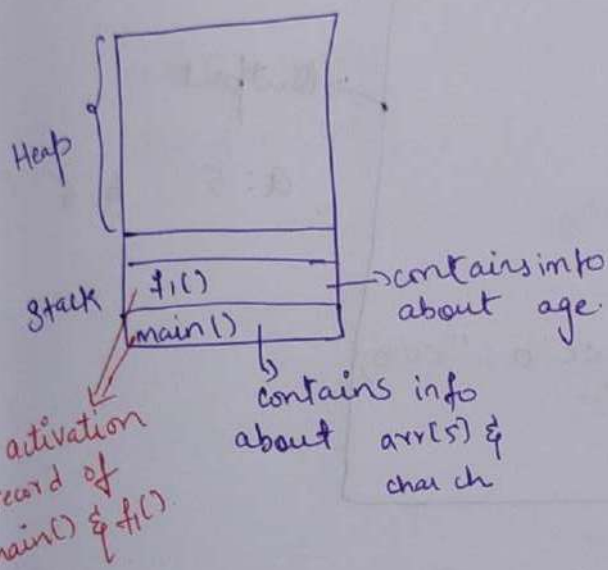 Heap
Stack
f1()
main()
→ contains info
about age.
contains info
about arr[5] &
char ch
activation
record of
main() & f1()
a: 5